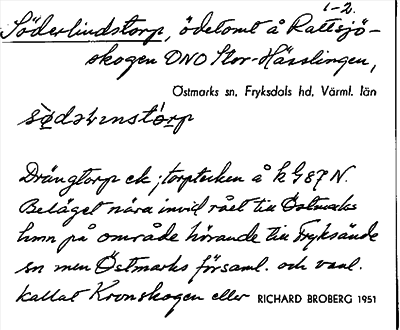 1-2.
Söderlindstorp, ödetomt å Rattsjö-
skogen ONO Stor-Hässlingen,
Östmarks sn, Fryksdals hd, Värml. län
Drängtorp ek; torptecken å k G 87 N.
Beläget nära invid rået till Östmarks
hmn på område hörande till Fryksände
sn men Östmarks församl. och vanl.
kallat Kronskogen eller RICHARD BROBERG 1951